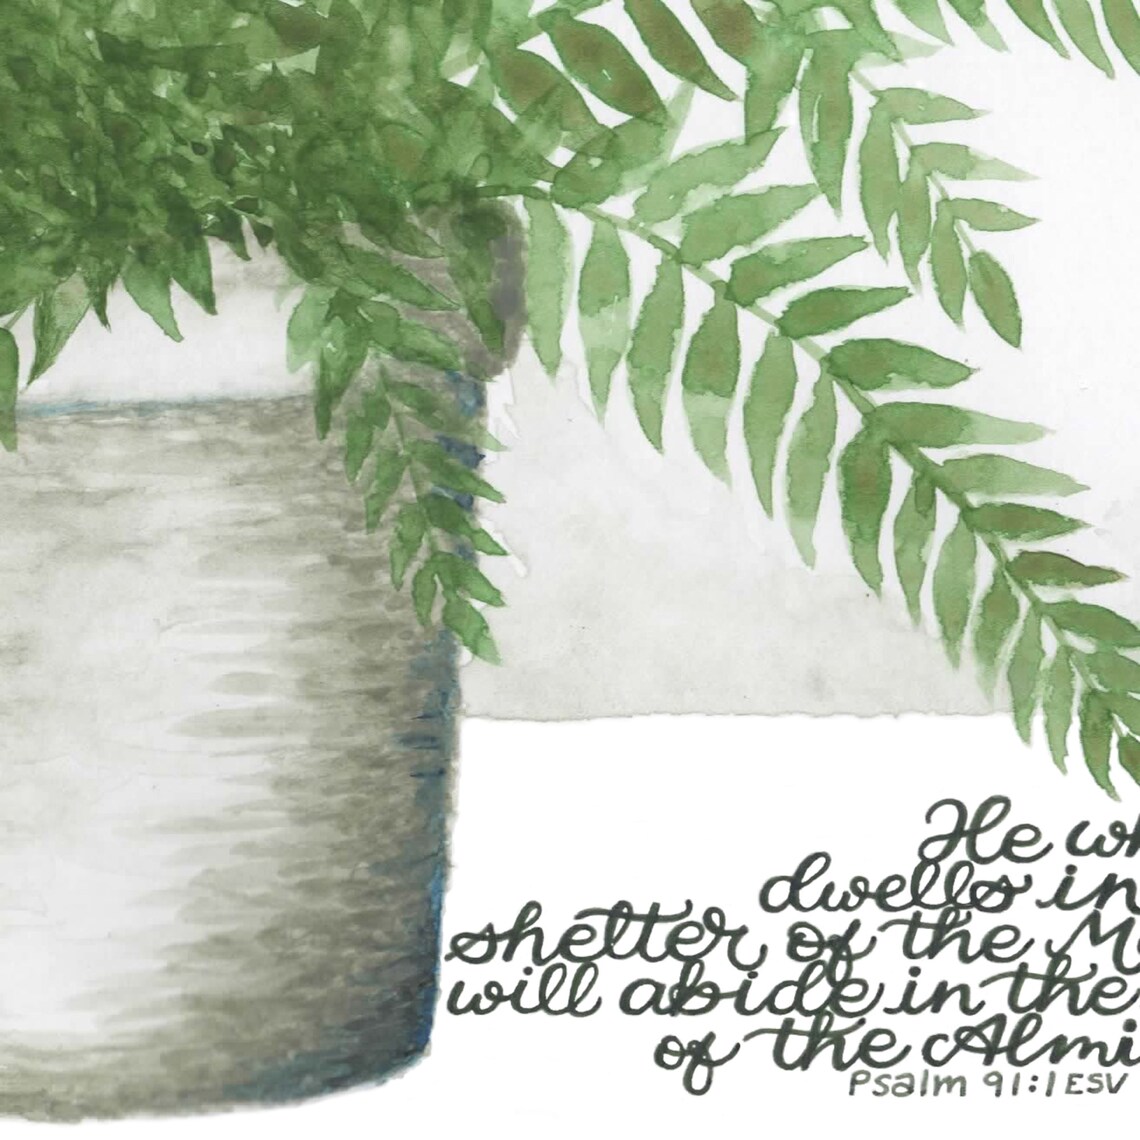 He wh
dwells in
shelter of the M
will abide in the
of the Almi
Psalm 91:1 ESV